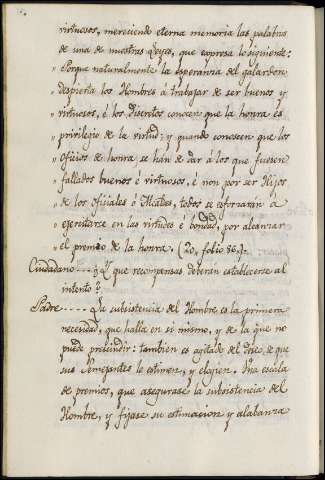 virtuosos, mereciendo eterna memoria las palabras
de una de nuestras Leyes, que expresa lo siguiente:
"Porque naturalmente la esperanza del galardon
"despierta los Hombres á trabajar de ser buenos y
"virtuosos, é los discretos conocen que la honra es
"privilegio de la virtud; y quando conoscen que los
"Oficios de honra se han de dar á los que fuesen
"fallados buenos é virtuosos, é non por ser Hijos
"de los oficiales ó Alcaldes, todos se esforzarán á
"exercitarse en las virtudes é bondad, por alcanzar
"el premio de la honra. (20, folio 86.)
Ciudadano---- ¿Y que recompensas deberan establecerse al
intento?
Padre---- La subsistencia del Hombre es la primera
necesidad, que halla en si mismo, y de la que no
puede prescindir: tambien es agitado del deseo, de que
sus Semejantes le estimen, y elogien. Una escala
de premios, que asegurase la subsistencia del
Hombre, y fijase su estimacion y alabanza